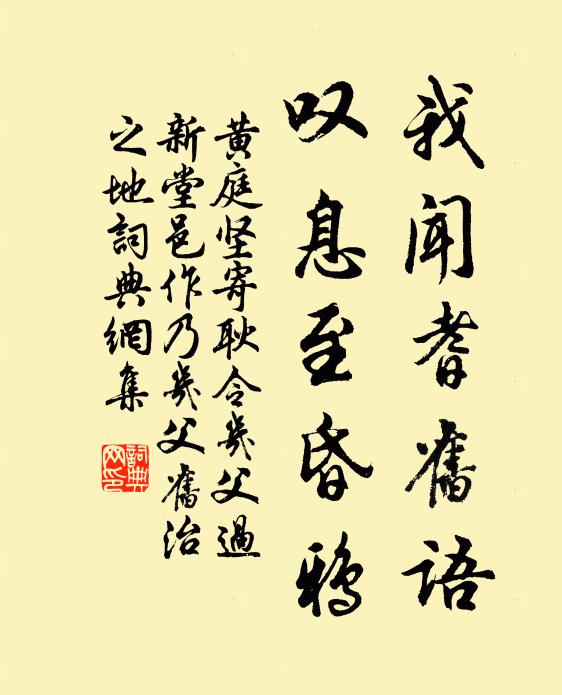 我闻耆舊语
叹息至昏鸦
黄庭坚寄耿令幾父過
新堂邑作乃幾父舊治
之地詞典網集
詞典网印